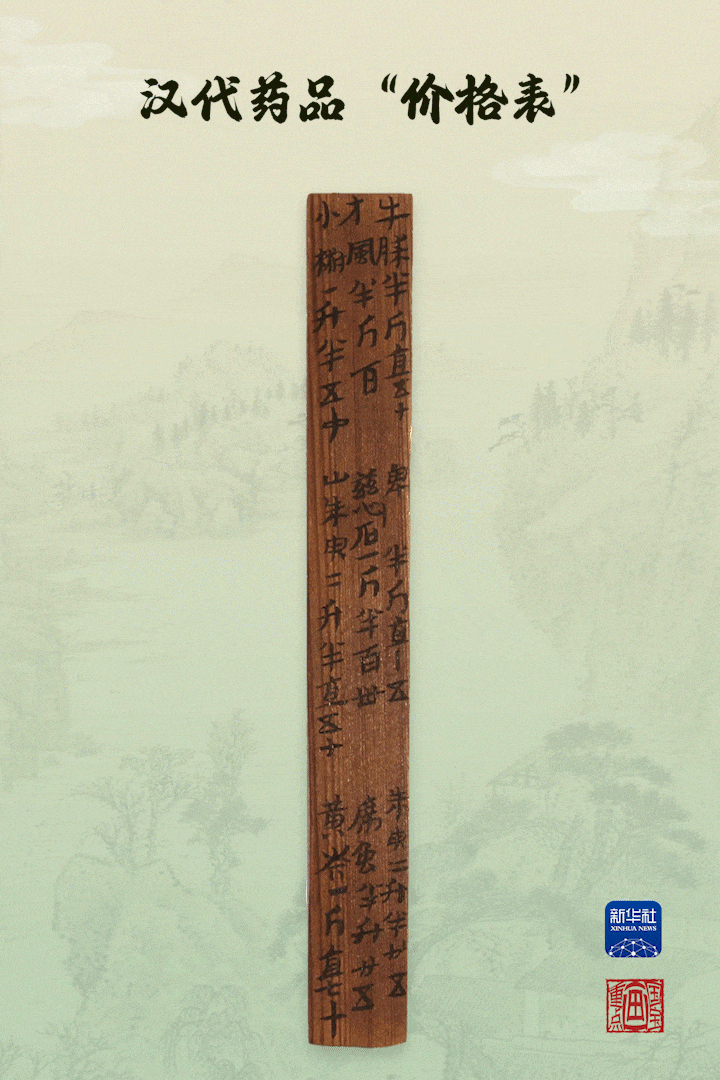 汉代药品“价格表”
牛膝半斤直五十
卑 半斤直 五
朱臾二升半廿五
方風半斤百
慈石一斤半百卅
席虫半升廿五
小椒一升半五十
山朱臾二升半直五十
黄芩一斤直七十
新华社
XINHUA NEWS